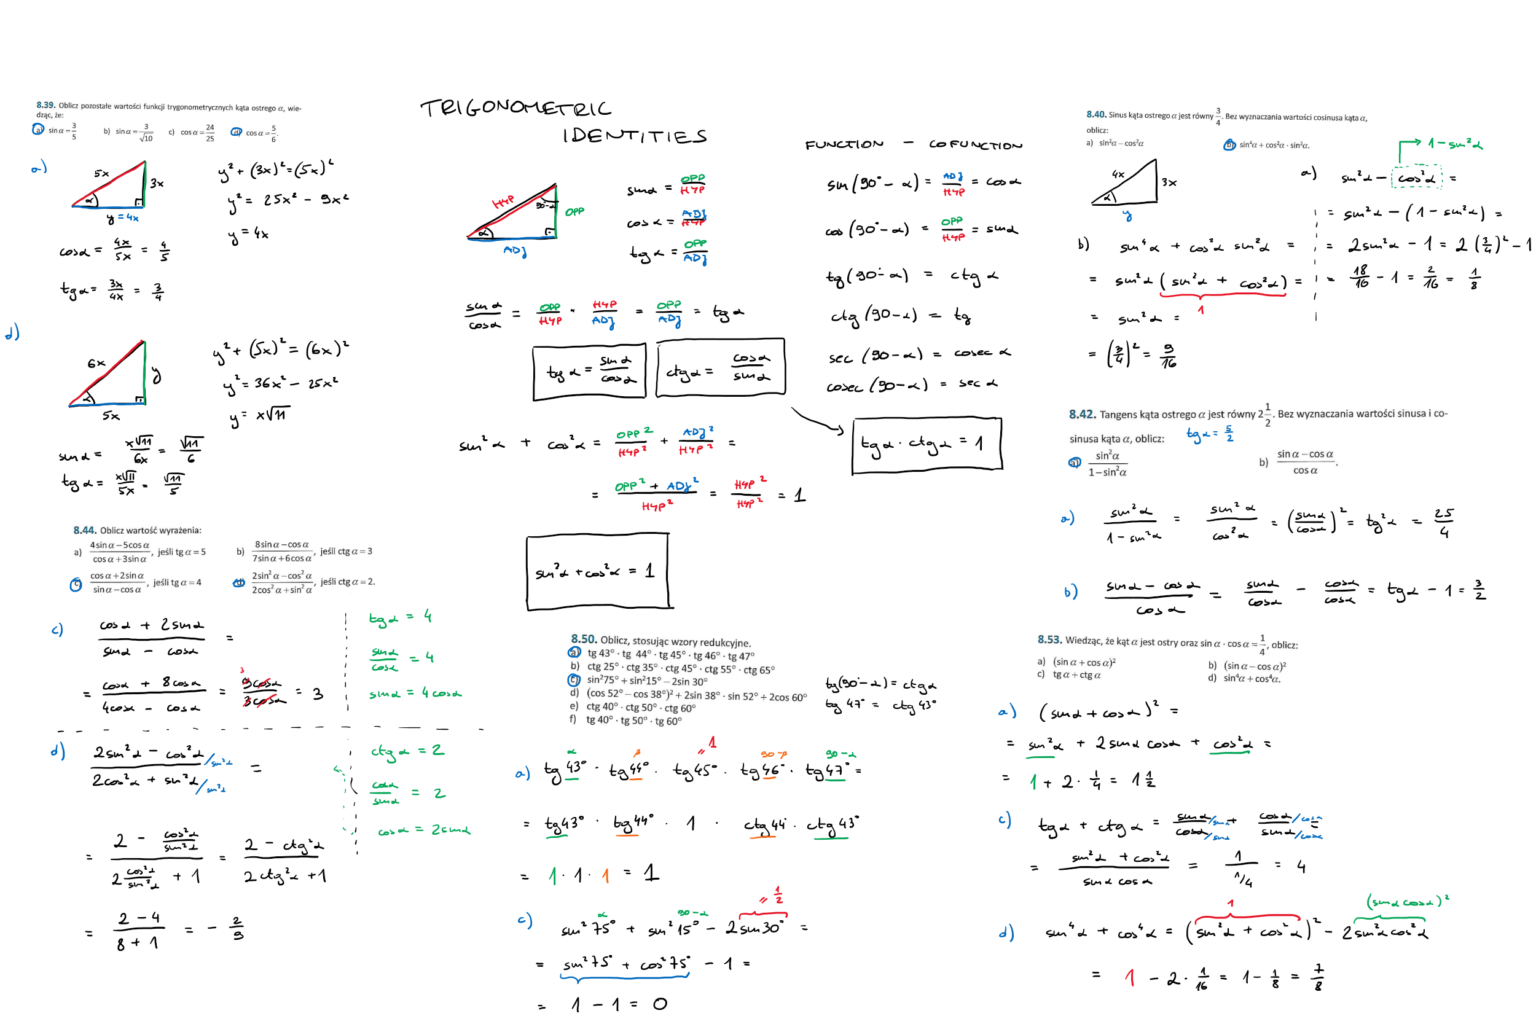 8.39. Oblicz pozostałe wartości funkcji trygonometrycznych kąta ostrego α, wie-
dząc, że:
a) sin α = 3/5 b) sin α = 3/√10 c) cos α = 24/25 d) cos α = 5/6.
a)
5x
3x
α
y = 4x
y² + (3x)² = (5x)²
y² = 25x² − 9x²
y = 4x
cos α = 4x/5x = 4/5
tg α = 3x/4x = 3/4
d)
6x
y
α
5x
y² + (5x)² = (6x)²
y² = 36x² − 25x²
y = x√11
sin α = x√11/6x = √11/6
tg α = x√11/5x = √11/5
8.44. Oblicz wartość wyrażenia:
a) (4 sin α − 5 cos α)/(cos α + 3 sin α), jeśli tg α = 5 b) (8 sin α − cos α)/(7 sin α + 6 cos α), jeśli ctg α = 3
c) (cos α + 2 sin α)/(sin α − cos α), jeśli tg α = 4 d) (2 sin² α − cos² α)/(2 cos² α + sin² α), jeśli ctg α = 2.
c) (cos α + 2 sin α)/(sin α − cos α) =
= (cos α + 8 cos α)/(4 cos α − cos α) = 9 cos α/3 cos α = 3
3
tg α = 4
sin α/cos α = 4
sin α = 4 cos α
d) (2 sin² α − cos² α /sin² α)/(2 cos² α + sin² α /sin² α) =
= (2 − cos² α/sin² α)/(2 cos² α/sin² α + 1) = (2 − ctg² α)/(2 ctg² α + 1)
= (2 − 4)/(8 + 1) = − 2/9
ctg α = 2
cos α/sin α = 2
cos α = 2 sin α
TRIGONOMETRIC
IDENTITIES
HYP
90-α
OPP
α
ADJ
sin α = OPP/HYP
cos α = ADJ/HYP
tg α = OPP/ADJ
sin α/cos α = OPP/HYP · HYP/ADJ = OPP/ADJ = tg α
tg α = sin α/cos α
ctg α = cos α/sin α
sin² α + cos² α = OPP²/HYP² + ADJ²/HYP² =
= (OPP² + ADJ²)/HYP² = HYP²/HYP² = 1
sin² α + cos² α = 1
FUNCTION − COFUNCTION
sin (90° − α) = ADJ/HYP = cos α
cos (90° − α) = OPP/HYP = sin α
tg (90° − α) = ctg α
ctg (90 − α) = tg
sec (90 − α) = cosec α
cosec (90 − α) = sec α
tg α · ctg α = 1
8.50. Oblicz, stosując wzory redukcyjne.
a) tg 43° · tg 44° · tg 45° · tg 46° · tg 47°
b) ctg 25° · ctg 35° · ctg 45° · ctg 55° · ctg 65°
c) sin² 75° + sin² 15° − 2 sin 30°
d) (cos 52° − cos 38°)² + 2 sin 38° · sin 52° + 2 cos 60°
e) ctg 40° · ctg 50° · ctg 60°
f) tg 40° · tg 50° · tg 60°
tg (90 − α) = ctg α
tg 47° = ctg 43°
α β = 1 90-β 90-α
a) tg 43° · tg 44° · tg 45° · tg 46° · tg 47° =
= tg 43° · tg 44° · 1 · ctg 44 · ctg 43°
= 1 · 1 · 1 = 1
α 90-α = 1/2
c) sin² 75° + sin² 15° − 2 sin 30° =
= sin² 75° + cos² 75° − 1 =
= 1 − 1 = 0
8.40. Sinus kąta ostrego α jest równy 3/4. Bez wyznaczania wartości cosinusa kąta α,
oblicz:
a) sin² α − cos² α b) sin⁴ α + cos² α · sin² α.
4x
3x
α
y
1 − sin² α
a) sin² α − cos² α =
= sin² α − (1 − sin² α) =
= 2 sin² α − 1 = 2 (3/4)² − 1
= 18/16 − 1 = 2/16 = 1/8
b) sin⁴ α + cos² α sin² α =
= sin² α (sin² α + cos² α) =
1
= sin² α =
= (3/4)² = 9/16
8.42. Tangens kąta ostrego α jest równy 2 1/2. Bez wyznaczania wartości sinusa i co-
sinusa kąta α, oblicz: tg α = 5/2
a) sin² α/(1 − sin² α) b) (sin α − cos α)/cos α.
a) sin² α/(1 − sin² α) = sin² α/cos² α = (sin α/cos α)² = tg² α = 25/4
b) (sin α − cos α)/cos α = sin α/cos α − cos α/cos α = tg α − 1 = 3/2
8.53. Wiedząc, że kąt α jest ostry oraz sin α · cos α = 1/4, oblicz:
a) (sin α + cos α)² b) (sin α − cos α)²
c) tg α + ctg α d) sin⁴ α + cos⁴ α.
a) (sin α + cos α)² =
= sin² α + 2 sin α cos α + cos² α =
= 1 + 2 · 1/4 = 1 1/2
c) tg α + ctg α = sin α/cos α /sin α /sin α + cos α/sin α /cos α /cos α =
= (sin² α + cos² α)/(sin α cos α) = 1/(1/4) = 4
1 (sin α cos α)²
d) sin⁴ α + cos⁴ α = (sin² α + cos² α)² − 2 sin² α cos² α
= 1 − 2 · 1/16 = 1 − 1/8 = 7/8